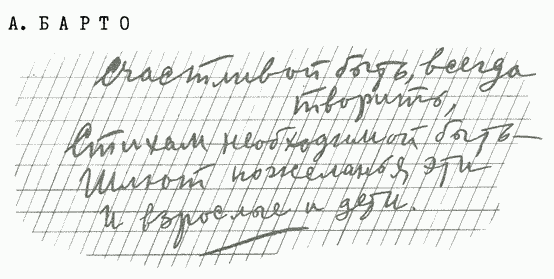 А. БАРТО
Счастливой быть, всегда
творить,
Стихам необходимой быть —
Шлют пожеланья эти
И взрослые и дети.